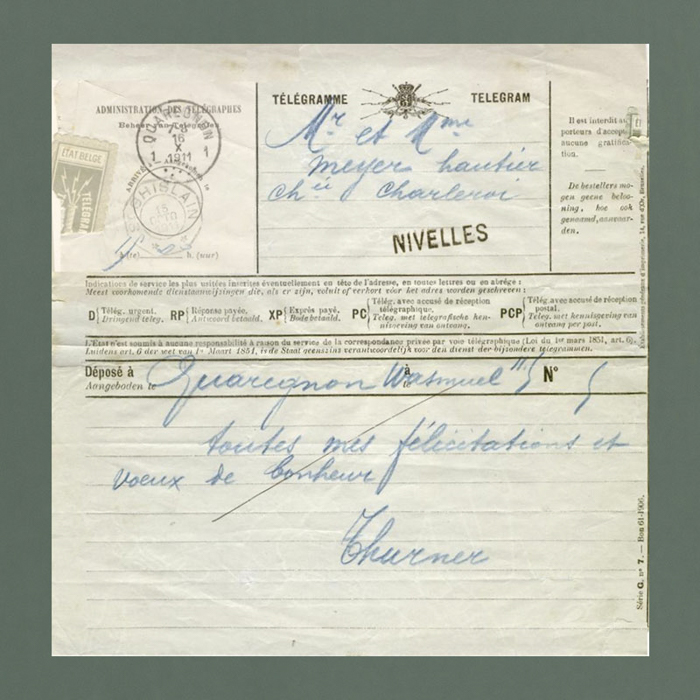 ADMINISTRATION DES TÉLÉGRAPHES
Beheer van Telegrafen
QUAREGNON
16
X
1 1911 1
ÉTAT BELGE
TÉLÉGRA
GHISLAIN
15
h. (uur)
TÉLÉGRAMME TELEGRAM
Mr et Mme
Meyer hautier
chée Charleroi
NIVELLES
Il est interdit aux
porteurs d'accepter
aucune gratifica-
tion.
De bestellers mo-
gen geene beloo-
ning, hoe ook
genoamd, aanvaar-
den.
Indications de service les plus usitées inscrites éventuellement en tête de l'adresse, en toutes lettres ou en abrégé :
Meest voorkomende dienstaanwijzingen die, als er zijn, voluit of verkort vóór het adres worden geschreven :
D Télég. urgent. Dringend teleg.
RP Réponse payée. Antwoord betaald.
XP Exprès payé. Bode betaald.
PC Télég. avec accusé de réception télégraphique. Teleg. met telegrafische ken-nisgeving van ontvang.
PCP Télég. avec accusé de réception postal. Teleg. met kennisgeving van ontvang per post.
L'État n'est soumis à aucune responsabilité à raison du service de la correspondance privée par voie télégraphique (Loi du 1er mars 1851, art. 6).
Luidens art. 6 der wet van 1n Maart 1851, is de Staat geenszins verantwoordelijk voor den dienst der bijzondere telegrammen.
Déposé à Quaregnon Wasmuel à N°
Aangeboden te te
toutes mes félicitations et
voeux de bonheur
Thurner
Série G, n° 7. — Bon 61-1906.